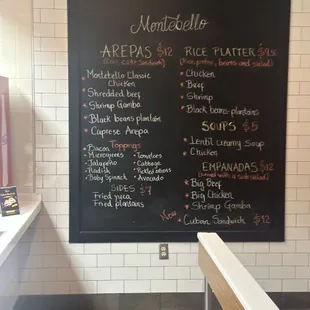 Montebello
AREPAS $12
(Corn cake sandwich)
Montebello Classic
Chicken
Shredded beef
Shrimp Gamba
Black beans plantain
Caprese Arepa
Toppings
Bacon
Microgreens
Radish
Jalapeño
Baby Spinach
Tomatoes
Cabbage
Pickled onions
Avocado
SIDES $7
Fried yuca
Fried plantains
RICE PLATTER
Chicken
Beef
Shrimp
Black beans-plantains
SOUPS $5
Lentil creamy Soup
Chicken
EMPANADAS $12
(served with a side salad)
Big Beef
Big Chicken
Shrimp Gamba
New
Cuban Sandwich $12